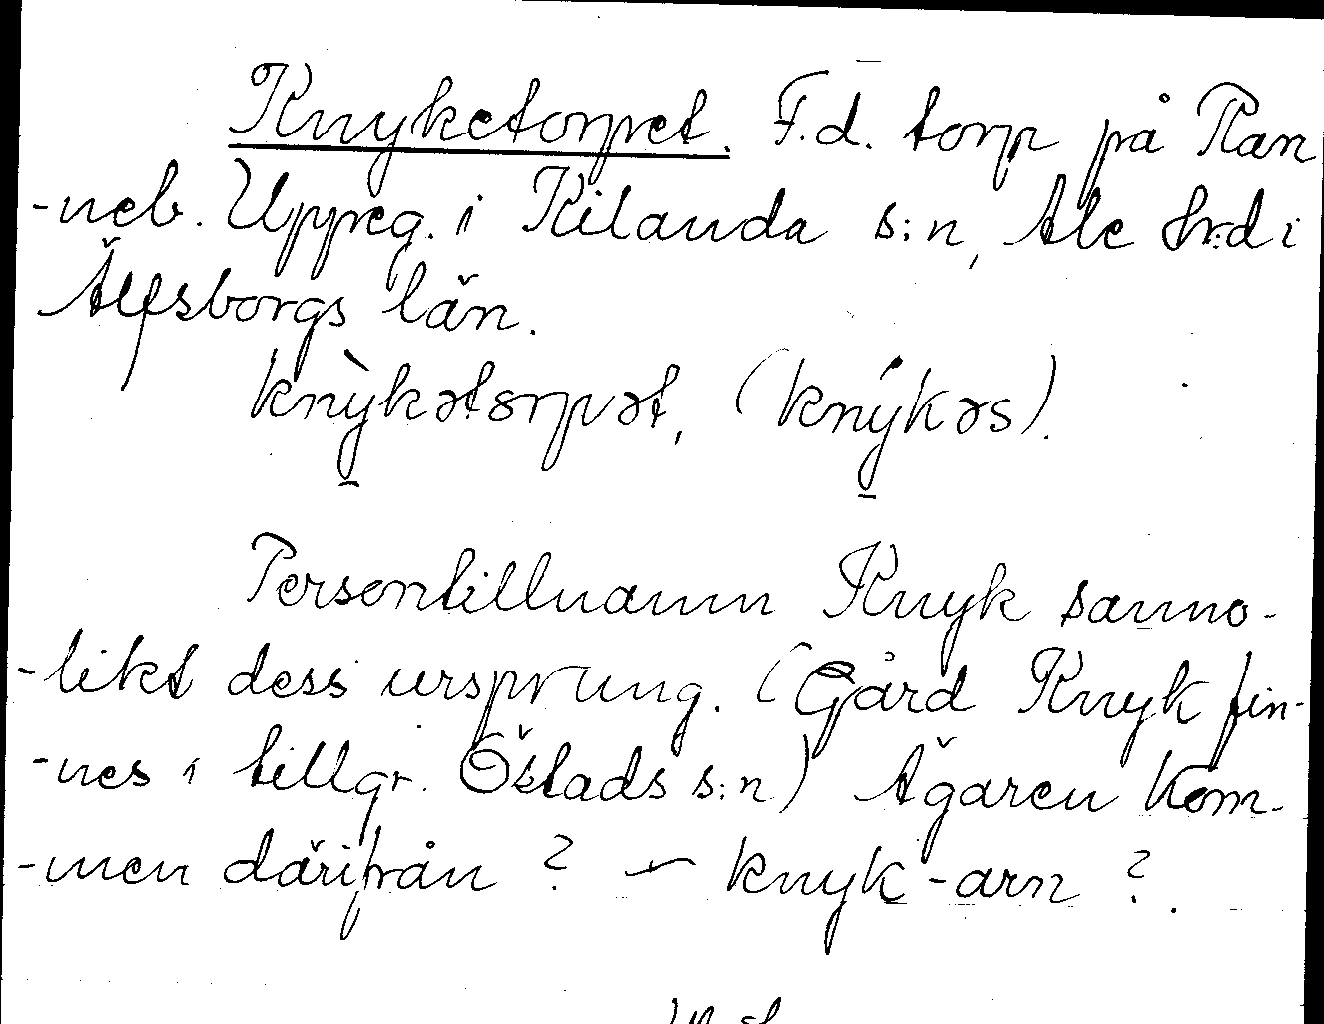 Knyketorpet. F.d. torp på Ran
-neb. Uppreg. i Kilanda s:n, Ale hrd i
Älfsborgs län.
knỳkətorpət, (knýkəs).
Persontillnamn Knyk sanno-
-likt dess ursprung. (Gård Knyk fin-
-nes i tillgr. Östads s:n) Ägaren kom-
-men därifrån? – knyk-arn?.